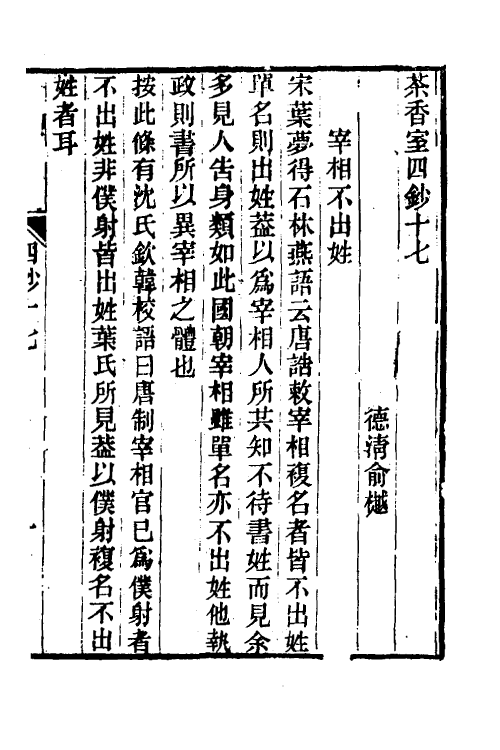 茶香室四鈔十七
德清俞樾
宰相不出姓
宋葉夢得石林燕語云唐誥敕宰相複名者皆不出姓
單名則出姓葢以爲宰相人所共知不待書姓而見余
多見人告身類如此國朝宰相雖單名亦不出姓他執
政則書所以異宰相之體也
按此條有沈氏欽韓校語曰唐制宰相官已爲僕射者
不出姓非僕射皆出姓葉氏所見葢以僕射複名不出
姓者耳
四鈔十七